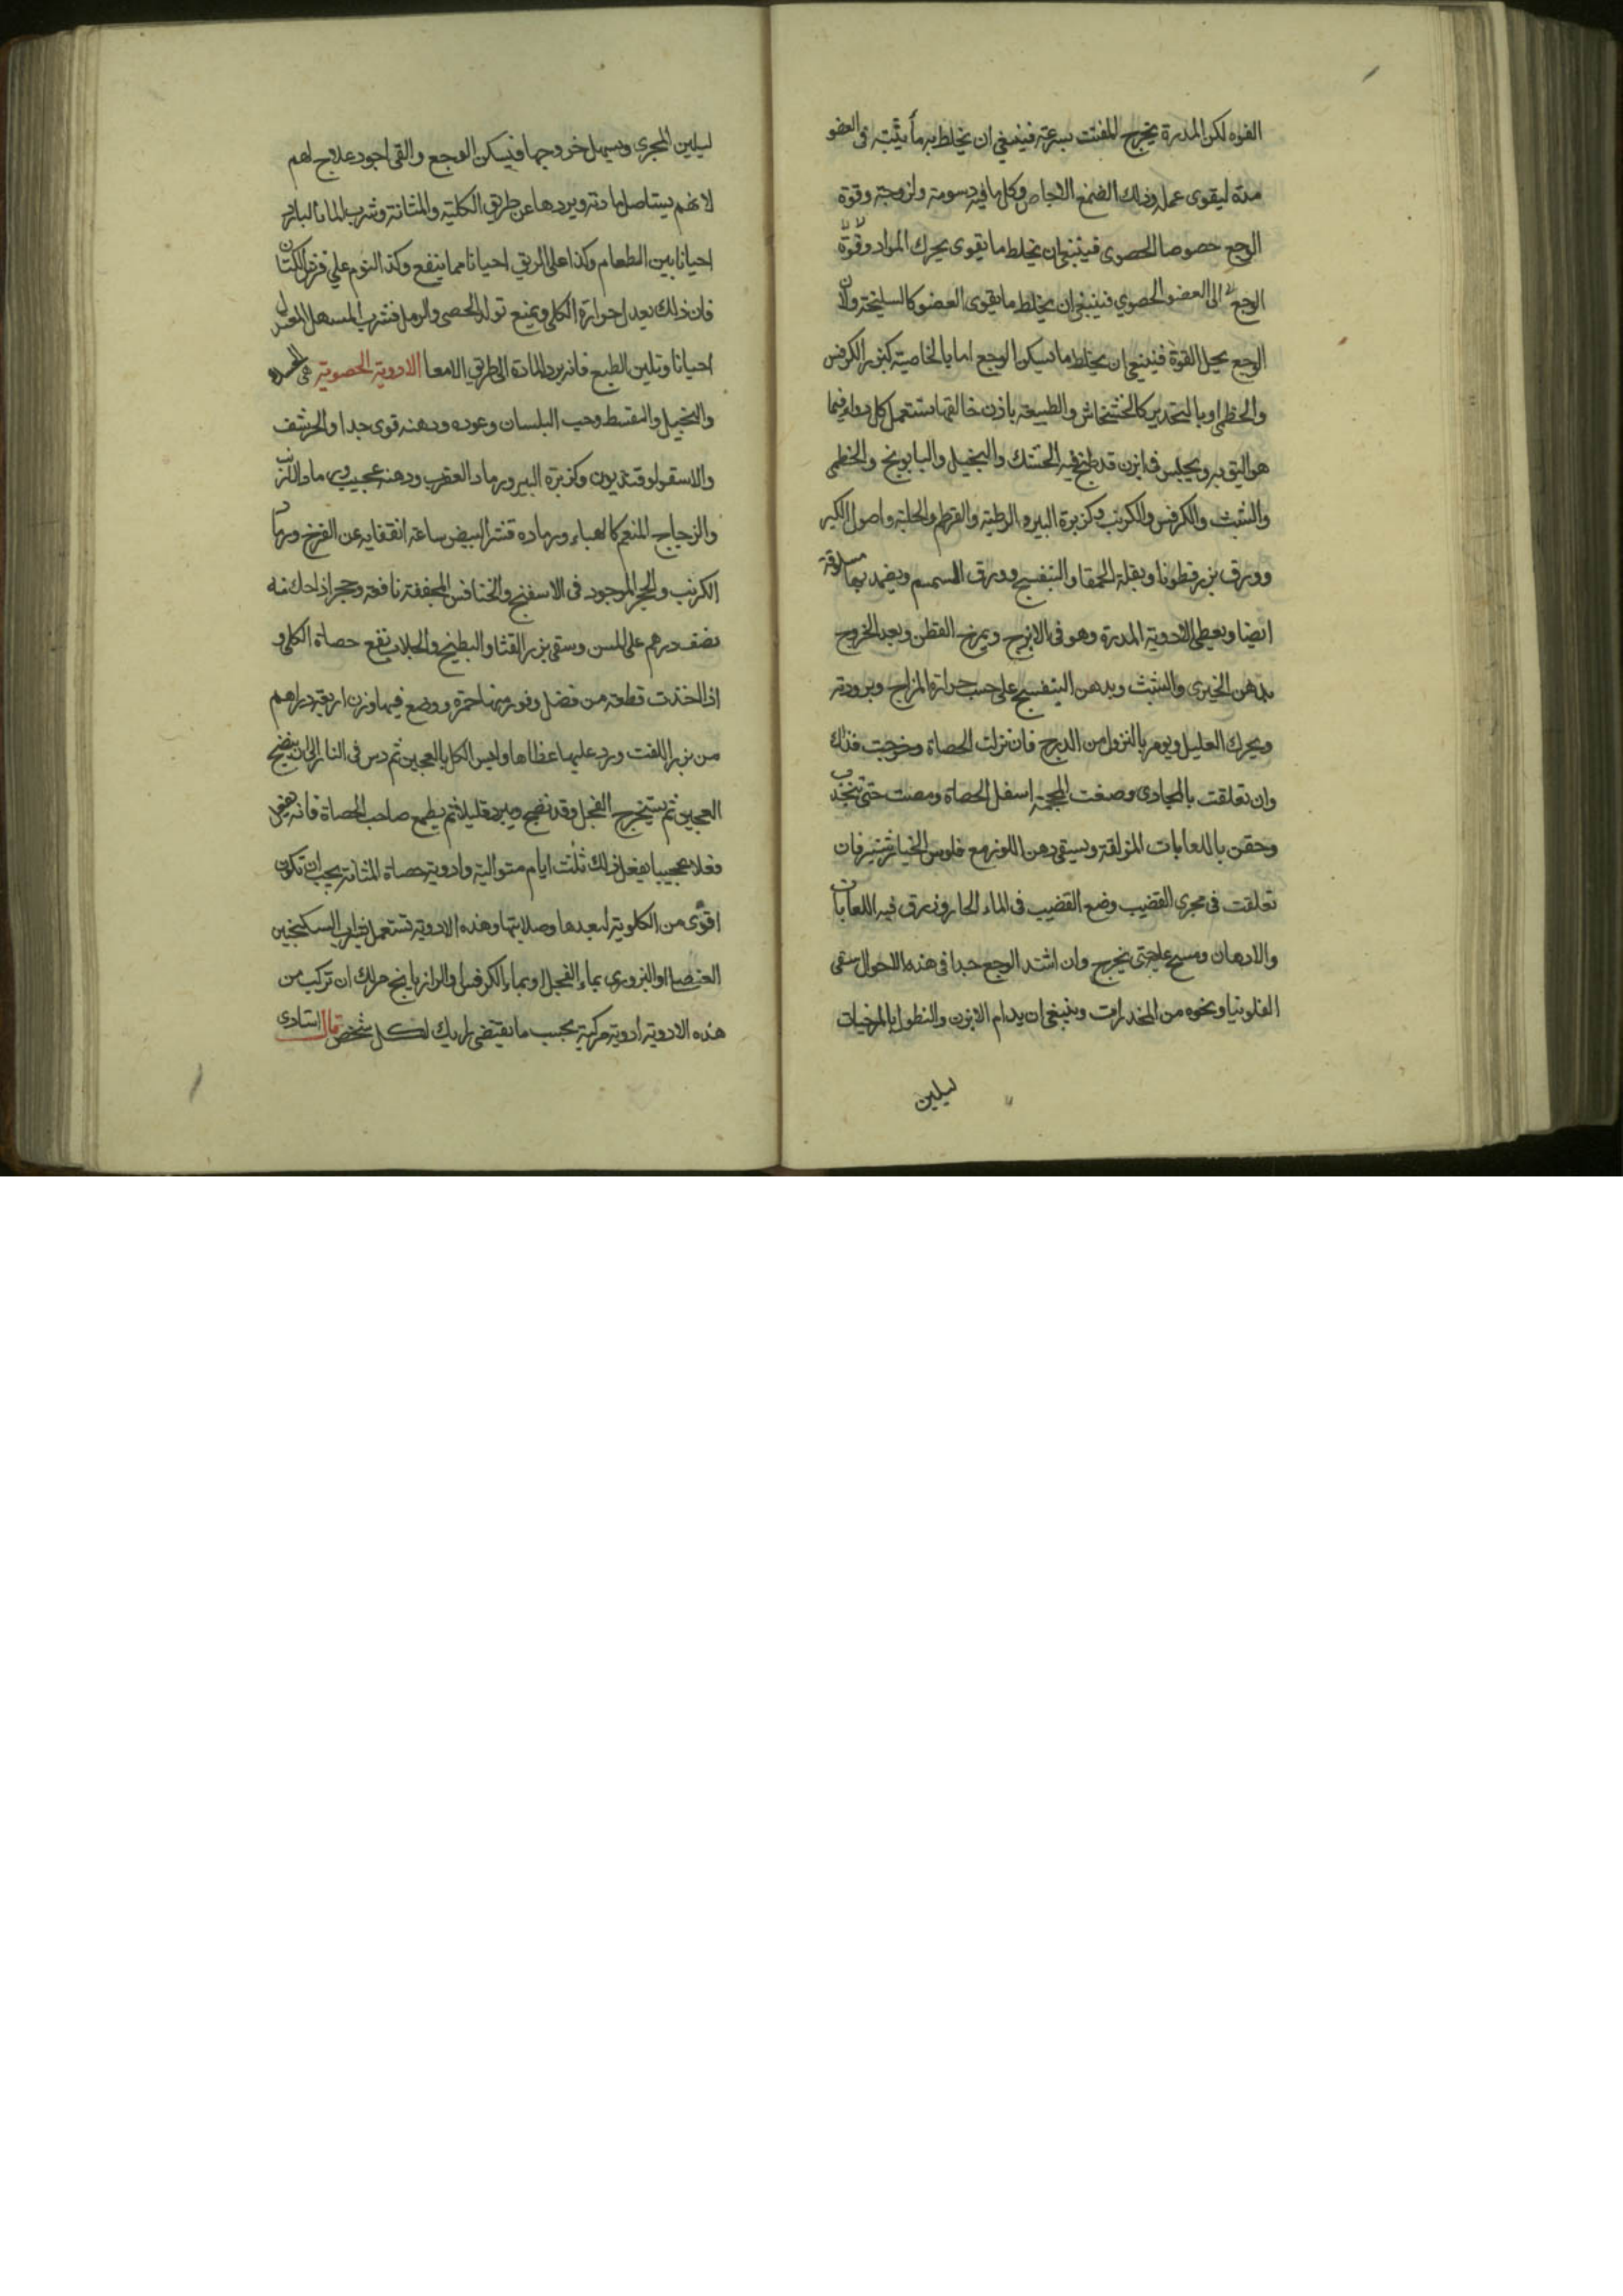 الفوه لكن المدرة يخرج المفتت بسرعة فينبغي ان يخلط به ما يثبته فى العضو
مدة ليقوى عمله وذلك الصمغ الاجاص وكل ما فيه دسومة ولزوجة وقوة
الوجع خصوصا الحصوى فينبغى ان يخلط ما يقوى يحرك المواد وقوة
الوجع الى العضو الحصوي فينبغى ان يخلط ما يقوى العضو كالسليخة ولان
الوجع يحل القوة فينبغى ان يخلط ما يسكن الوجع اما بالخاصية كبزر الكرفس
والخطمى او بالتخدير كالخشخاش والطبيعة باذن خالقها تستعمل كل دواء فيما
هو اليق به ويجلس فى ابزن قد طبخ فيه الحسك والنجيل والبابونج والخطمى
والشبث والكرفس والكرنب وكزبرة البير والرطبة والقرطم والحلبة واصول الكبر
وورق بزرقطونا وبقلة الحمقا والبنفسج وورق السمسم ويضمد بها مسلوقة
ايضا ويعطى الادوية المدرة وهو فى الابزن ويمرخ القطن وبعد الخروج
بدهن الخيرى والشبث وبدهن البنفسج على حسب حرارة المزاج وبرودته
ويحرك العليل ويومر بالنزول من الدرج فان نزلت الحصاة وخرجت فذاك
وان تعلقت بالمجارى وضعت المحجمة اسفل الحصاة ومصت حتى تنجذب
وحقن باللعابات المزلقة ويسقى دهن اللوز مع فلوس الخيار شنبر فان
تعلقت فى مجرى القضيب وضع القضيب فى الماء الحار وزرق فيه اللعابات
والادهان ومسح عليه حتى يخرج وان اشتد الوجع جدا فى هذه الاحوال سقى
الفلونيا ونحوه من المخدرات وينبغى ان يدام الابزن والنطول بالمرخيات
ليلين
ليلين المجرى ويسهل خروجها فيسكن الوجع والقى اجود علاج لهم
لانهم يستاصل مادته ويردها عن طريق الكلية والمثانة وشرب الماء البارد
احيانا بين الطعام وكذا على الريق احيانا مما ينفع وكذا النوم على فرش الكتان
فان ذلك يعدل حرارة الكلى ويمنع تولد الحصى والرمل فشرب المسهل المعتدل
احيانا وتليين الطبع فانه يرد المادة الى طريق الامعا الادوية الحصوية هى
والنجيل والقسط وحب البلسان وعوده ودهنه قوى جدا والحرشف
والاسقولوقندريون وكزبرة البير ورماد العقرب ودهنه عجيب ورماد الارنب
والزجاج المنعم كالهباء ورماده قشر البيض ساعة انقفايه عن الفرخ ورماد
الكرنب والحجر الموجود فى الاسفنج والخنافس المجففة نافعة وحجر اذا حك منه
نصف درهم على المسن وسقى بزر القثا والبطيخ والجلاب نفع حصاة الكلى و
اذا اخذت قطعة من فجل وقور منها حمزة ووضع فيها وزن اربعة دراهم
من بزر اللفت ورد عليها غطاها والبس الكل بالعجين ثم دس فى النار الى ان ينضج
العجين ثم يستخرج الفجل وقد نضج ويبرد قليلا ثم يطعم صاحب الحصاة فانه يفعل
فعلا عجيبا يفعل ذلك ثلث ايام متوالية وادوية حصاة المثانة يجب ان تكون
اقوى من الكلوية لبعدها وصلابتها وهذه الادوية تستعمل بشراب السكنجبين
العنصلى او البزورى بماء الفجل او بماء الكرفس والرازيانج ولك ان تركب من
هذه الادوية أدوية مركبة بحسب ما يقتضى رايك لكل شخص قال استادى